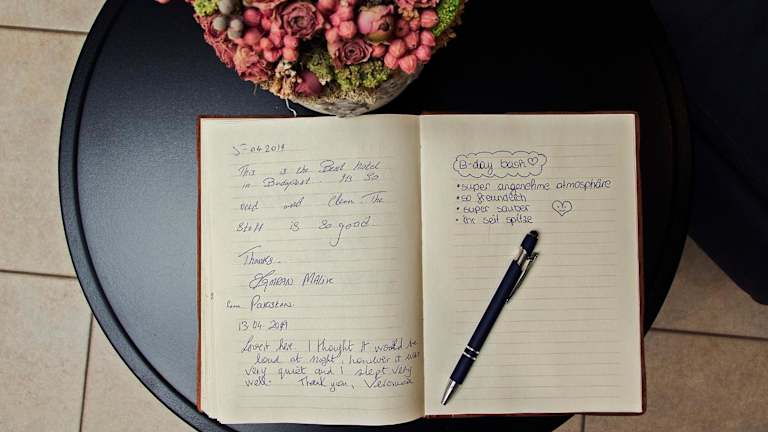 5-04 2019
This is the Best Hotel
in Budapest. It's So
and Clean The
Staff is so good.
Thanks.
IMRAN MALIK
From Pakistan.
13.04.2019
Love it here. I thought it would be
loud at night, however it was
very quiet and I slept very
well. Thank you, Veronica
B-day bash
• super angenehme atmosphäre
• so freundlich
• super sauber
• ihr seit spitze